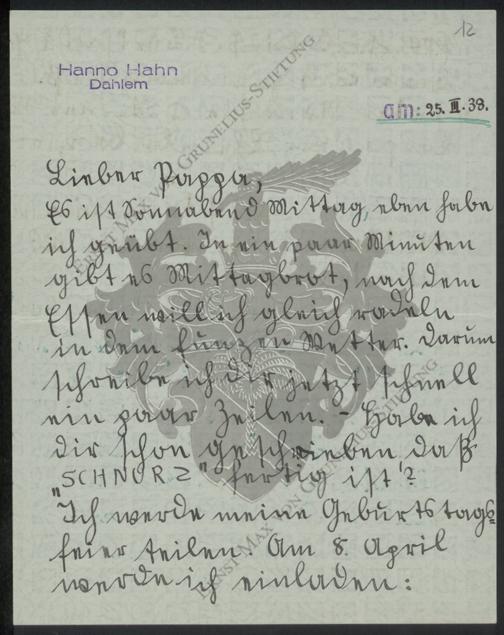 12
Hanno Hahn
Dahlem
am: 25. III. 39.
Lieber Pappa,
Es ist Sonnabend Mittag, eben habe
ich geübt. In ein paar Minuten
gibt es Mittagbrot, nach dem
Essen will ich gleich radeln
in dem Wetter. Darum
schreibe ich dir jetzt schnell
ein paar Zeilen. – Habe ich
dir schon geschrieben daß
„SCHNURZ" fertig ist?
Ich werde meine Geburtstags-
feier teilen. Am 8. April
werde ich einladen:
ERNST MAX VON GRUNELIUS-STIFTUNG
ERNST MAX VON GRUNELIUS-STIFTUNG